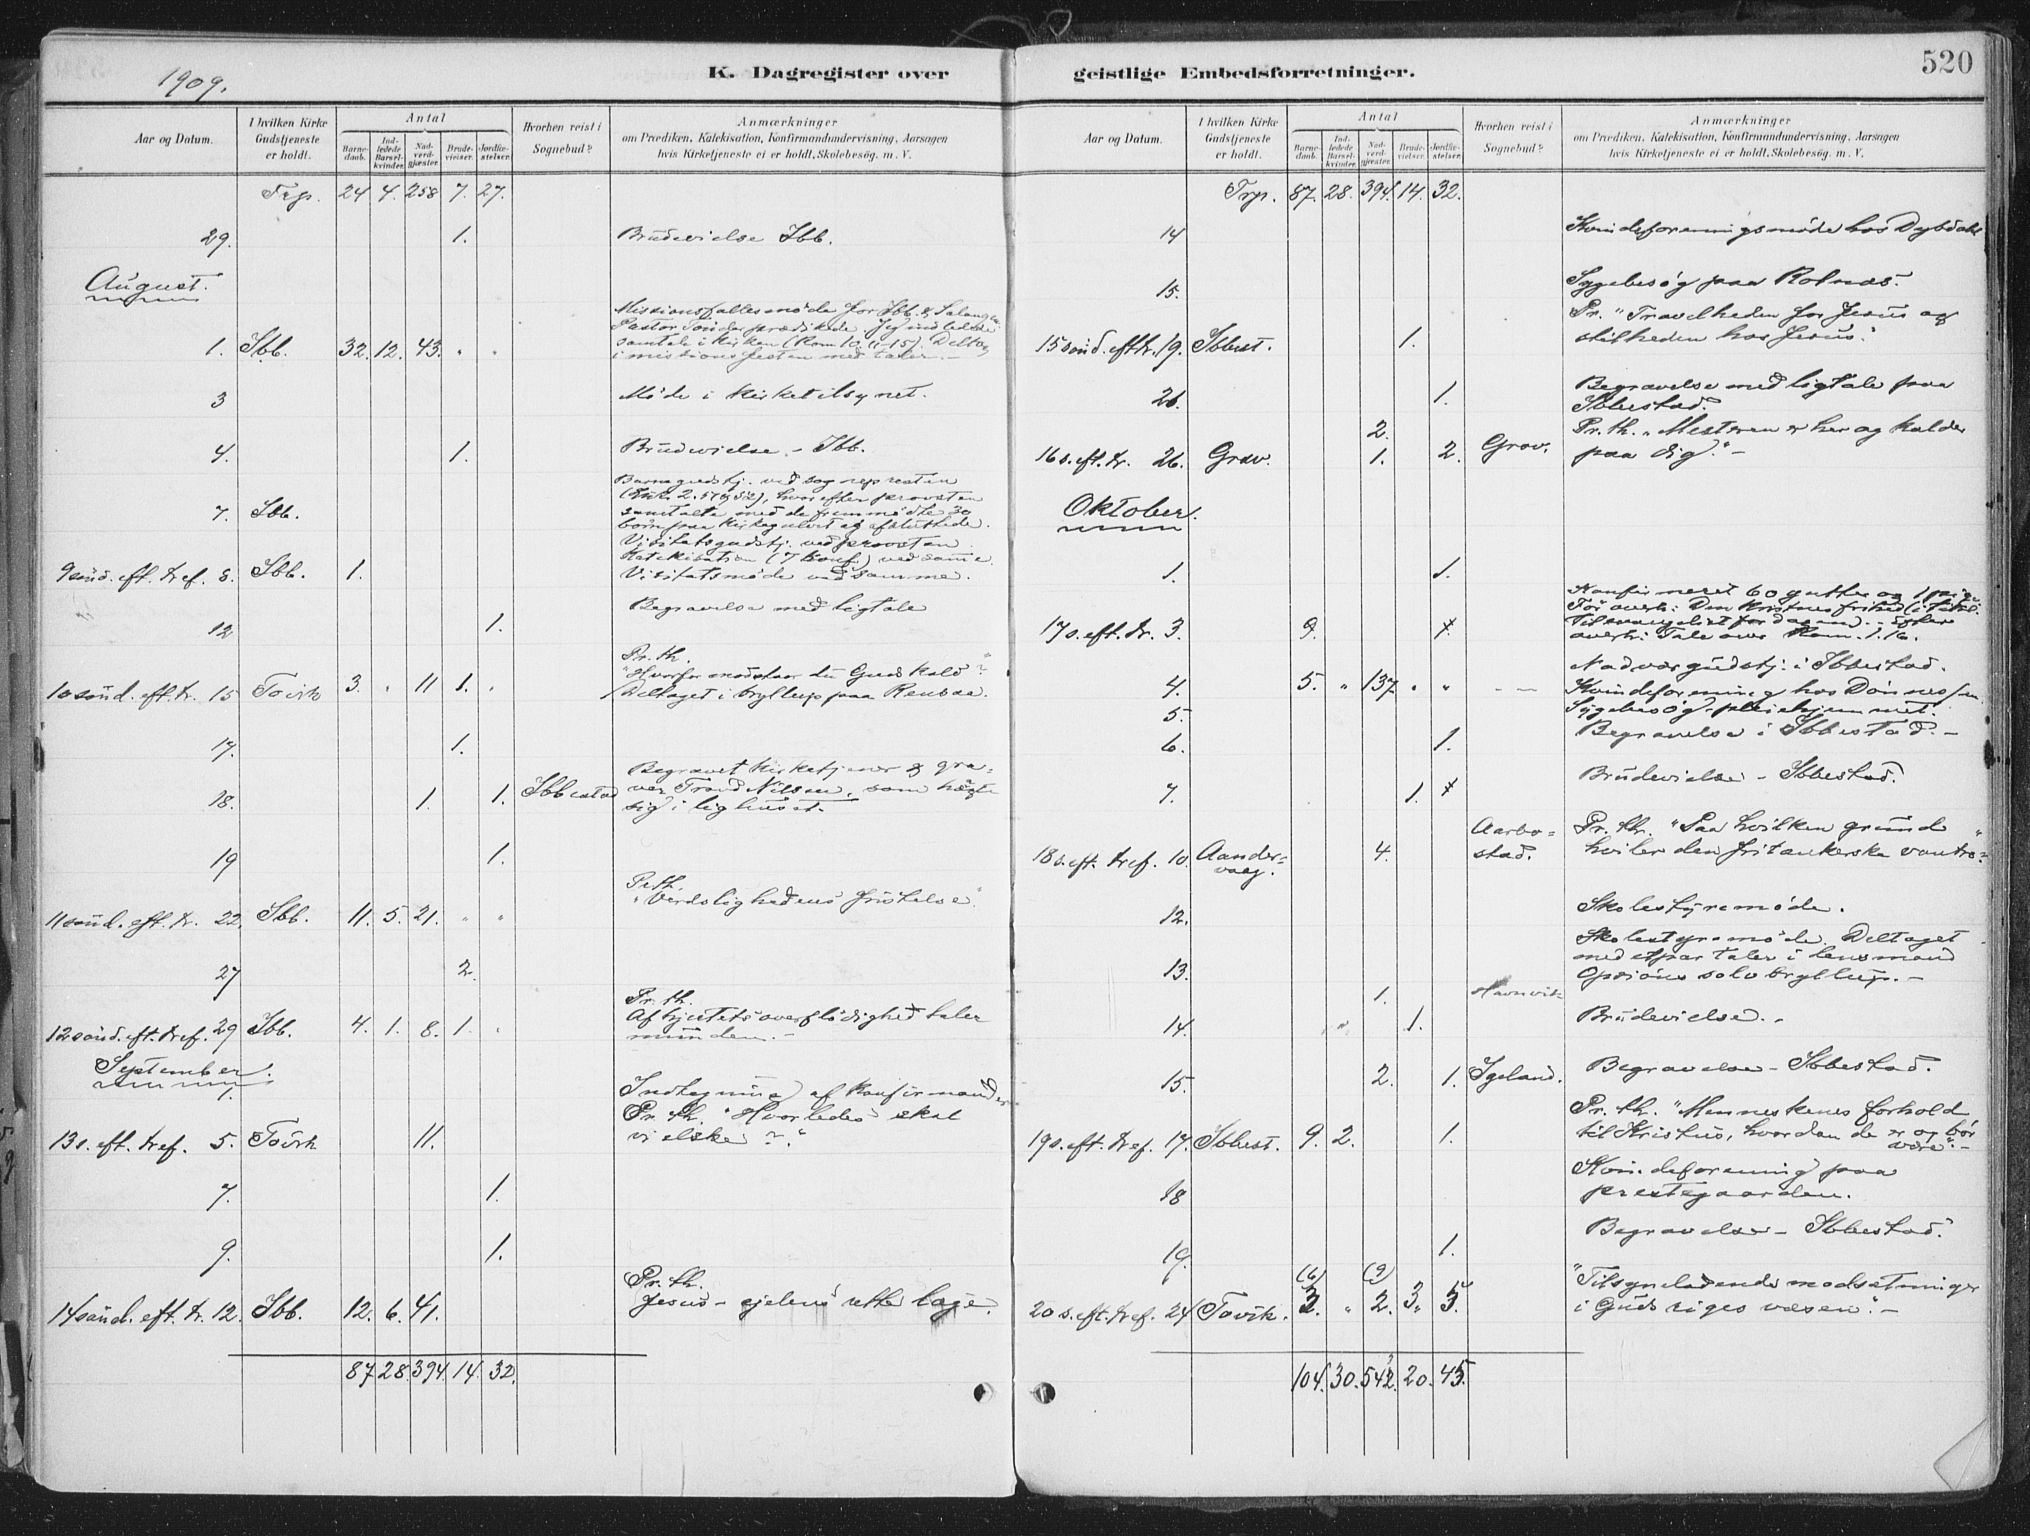 1909.
K. Dagregister over
Aar og Datum.
I hvilken Kirke Gudstjeneste er holdt.
Antal
Barnedaab.
Indledede Barselkvinder.
Nadverdgjester.
Brudevielser.
Jordfæstelser.
Hvorhen reist i Sognebud?
Anmærkninger
om Prædiken, Katekisation, Konfirmandundervisning, Aarsagen
hvis Kirketjeneste ei er holdt, Skolebesög. m. V.
Trp. 24 4. 258 7. 27.
29. 1. Brudevielse Ibb.
August.
Missionsfællesmöde for Ibb. & Salangen
Pastor Tönder prædikede. Jeg indledede
samtale i kirken (Rom 10, 11-15). Deltog
1. Ibb. 32. 12. 43. " " i missionsfesten med taler. –
3 Möde i kirketilsynet.
4. 1. Brudevielse – Ibb.
Barnegudstj. ved
(Luk. 2. 51 & 52), hvorefter provsten
samtalte med de fremmödte 30
7. Ibb. börn paa kirkegulvet og afsluttede.
Visitatsgudstj. ved provsten.
Katekisation (7 konf.) ved samme
9 sönd. eft. tref. 8. Ibb. 1. Visitatsmöde ved samme.
12 1. Begravelse med ligtale
Pr. th.
"Hvorfor modstaar du Guds kald?"
10 sönd. eft. tr. 15 Tovik 3. " 11 1. " Deltaget i bryllup paa Renbae.
17. 1.
Begravet kirketjener & gra=
18. 1. 1. Ibbestad ver Trond Nilsen, som hængte
sig i lighuset.
19 1.
Pr. th.
"Verdslighedens fristelse."
11 sönd. eft. tr. 22. Ibb. 11. 5. 21. " "
27 2.
Pr. th.
Af hjertets overflödighed taler
12 sönd. eft. tref. 29 Ibb. 4. 1. 8. 1. " munden. –
September.
1. Indtegning af konfirmander
Pr. th. "Hvorledes skal
13 s. eft. tref. 5. Tovik 11. vi elske?"
7. 1.
9. 1.
Pr. th.
14 sönd. eft. tr. 12. Ibb. 12. 6. 41. Jesus – sjelens rette læge.
87 28. 394. 14. 32.
geistlige Embedsforretninger.
520
Aar og Datum.
I hvilken Kirke Gudstjeneste er holdt.
Antal
Barnedaab.
Indledede Barselkvinder.
Nadverdgjester.
Brudevielser.
Jordfæstelser.
Hvorhen reist i Sognebud?
Anmærkninger
om Prædiken, Katekisation, Konfirmandundervisning, Aarsagen
hvis Kirketjeneste ei er holdt, Skolebesög. m. V.
Trp. 87. 28. 394. 14. 32.
14 Kvindeforeningsmöde hos Dybdahl
15. Sygebesög paa Rolnæs.
Pr. "Travelheden for Jesus og
15 sönd. eft. tr. 19. Ibbest. 1. stilheden hos Jesus".
26. 1. Begravelse med ligtale paa
Ibbestad.
2. Pr. th. "Mesteren er her og kalder
16 s. eft. tr. 26. Grav. 1. 2. Grov. paa dig." –
Oktober.
1. 1.
Konfirmeret 60 gutter og 1 pige
Tilsvangelist for dagen. – Efter
17 s. eft. tr. 3. 9. overh: Tale over Rom. 1.16.
Nadvergudstj. i Ibbestad.
4. 5. " 137 " " – – Kvindeforening hos Dönnessen
5. Sygebesög – pleiehjemmet.
6. 1. Begravelse i Ibbestad. –
7. 1. Brudevielse – Ibbestad.
18 s. eft. tref. 10. Aander=vaag. 4. Aarbo=stad. Pr. th. "Paa hvilken grund
hviler den fritænkerske vantro?"
12. Skolestyremöde.
Skolestyremöde. Deltaget
13. med et par taler i lensmand
Opsiöns sölvbryllup. –
1. Havnvik
14. 1. Brudevielse. –
15. 2. 1. Igeland. Begravelse – Ibbestad.
Pr. th. "Menneskenes forhold
19 s. eft. tref. 17. Ibbest. 9. 2. 1. til Kristus, hvordan de er og bör
være". –
18 Kvindeforening paa
prestegaarden.
19. 1. Begravelse – Ibbestad.
(6) (9) "Tilsyneladende modsætninger
20 s. eft. tref. 24 Tovik. 3. " 2. 3. 5. i Guds riges væsen". –
104. 30. 542. 20. 45.